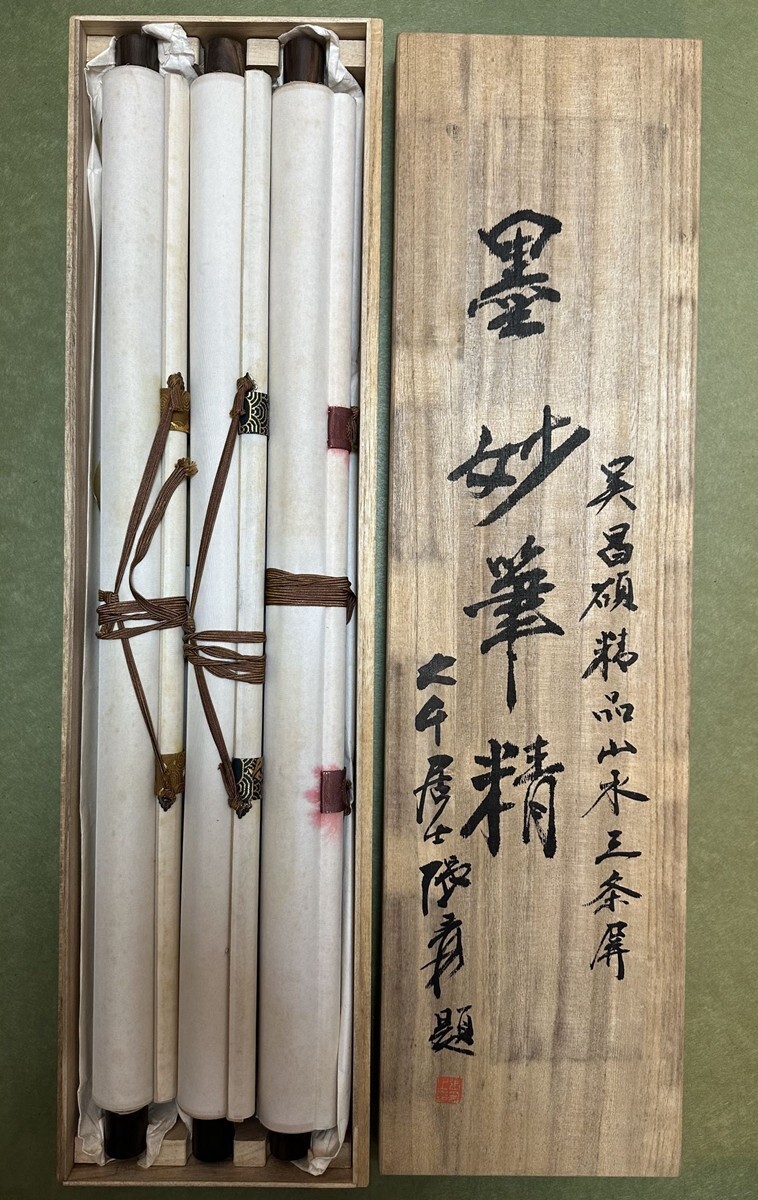 吴昌硕精品山水三条屏
墨妙筆精
大千居士張爰題